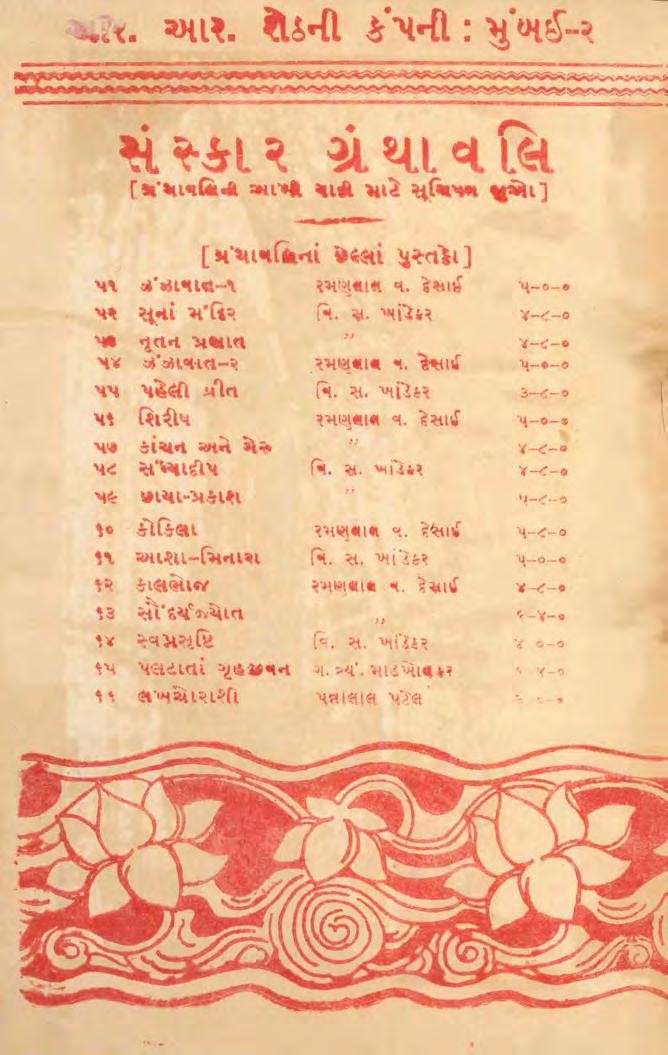 આર. આર. શેઠની કંપની : મુંબઈ-૨
સંસ્કાર ગ્રંથાવલિ
[ગ્રંથાવલિની આખી યાદી માટે સૂચિપત્ર જુઓ]
[ગ્રંથાવલિનાં છેલ્લાં પુસ્તકો]
૫૧ ઝંઝાવાત-૧ રમણલાલ વ. દેસાઈ ૫-૦-૦
૫૨ સૂનાં મંદિર વિ. સ. ખાંડેકર ૪-૮-૦
૫૩ નૂતન પ્રભાત ,, ૪-૮-૦
૫૪ ઝંઝાવાત-૨ રમણલાલ વ. દેસાઈ ૫-૦-૦
૫૫ પહેલી પ્રીત વિ. સ. ખાંડેકર ૩-૮-૦
૫૬ શિરીષ રમણલાલ વ. દેસાઈ ૫-૦-૦
૫૭ કાંચન અને ગેરુ ,, ૪-૮-૦
૫૮ સંધ્યાદીપ વિ. સ. ખાંડેકર ૪-૮-૦
૫૯ છાયા-પ્રકાશ ,, ૫-૮-૦
૬૦ કોકિલા રમણલાલ વ. દેસાઈ ૫-૮-૦
૬૧ આશા-મિનારા વિ. સ. ખાંડેકર ૫-૦-૦
૬૨ કાલભોજ રમણલાલ વ. દેસાઈ ૪-૮-૦
૬૩ સૌંદર્યજ્યોત ,, ૬-૪-૦
૬૪ સ્વપ્નસૃષ્ટિ વિ. સ. ખાંડેકર ૪-૦-૦
૬૫ પલટાતાં ગૃહજીવન ગ. ત્ર્યં. માડખોલકર ૬-૪-૦
૬૬ લખચોરાશી પન્નાલાલ પટેલ